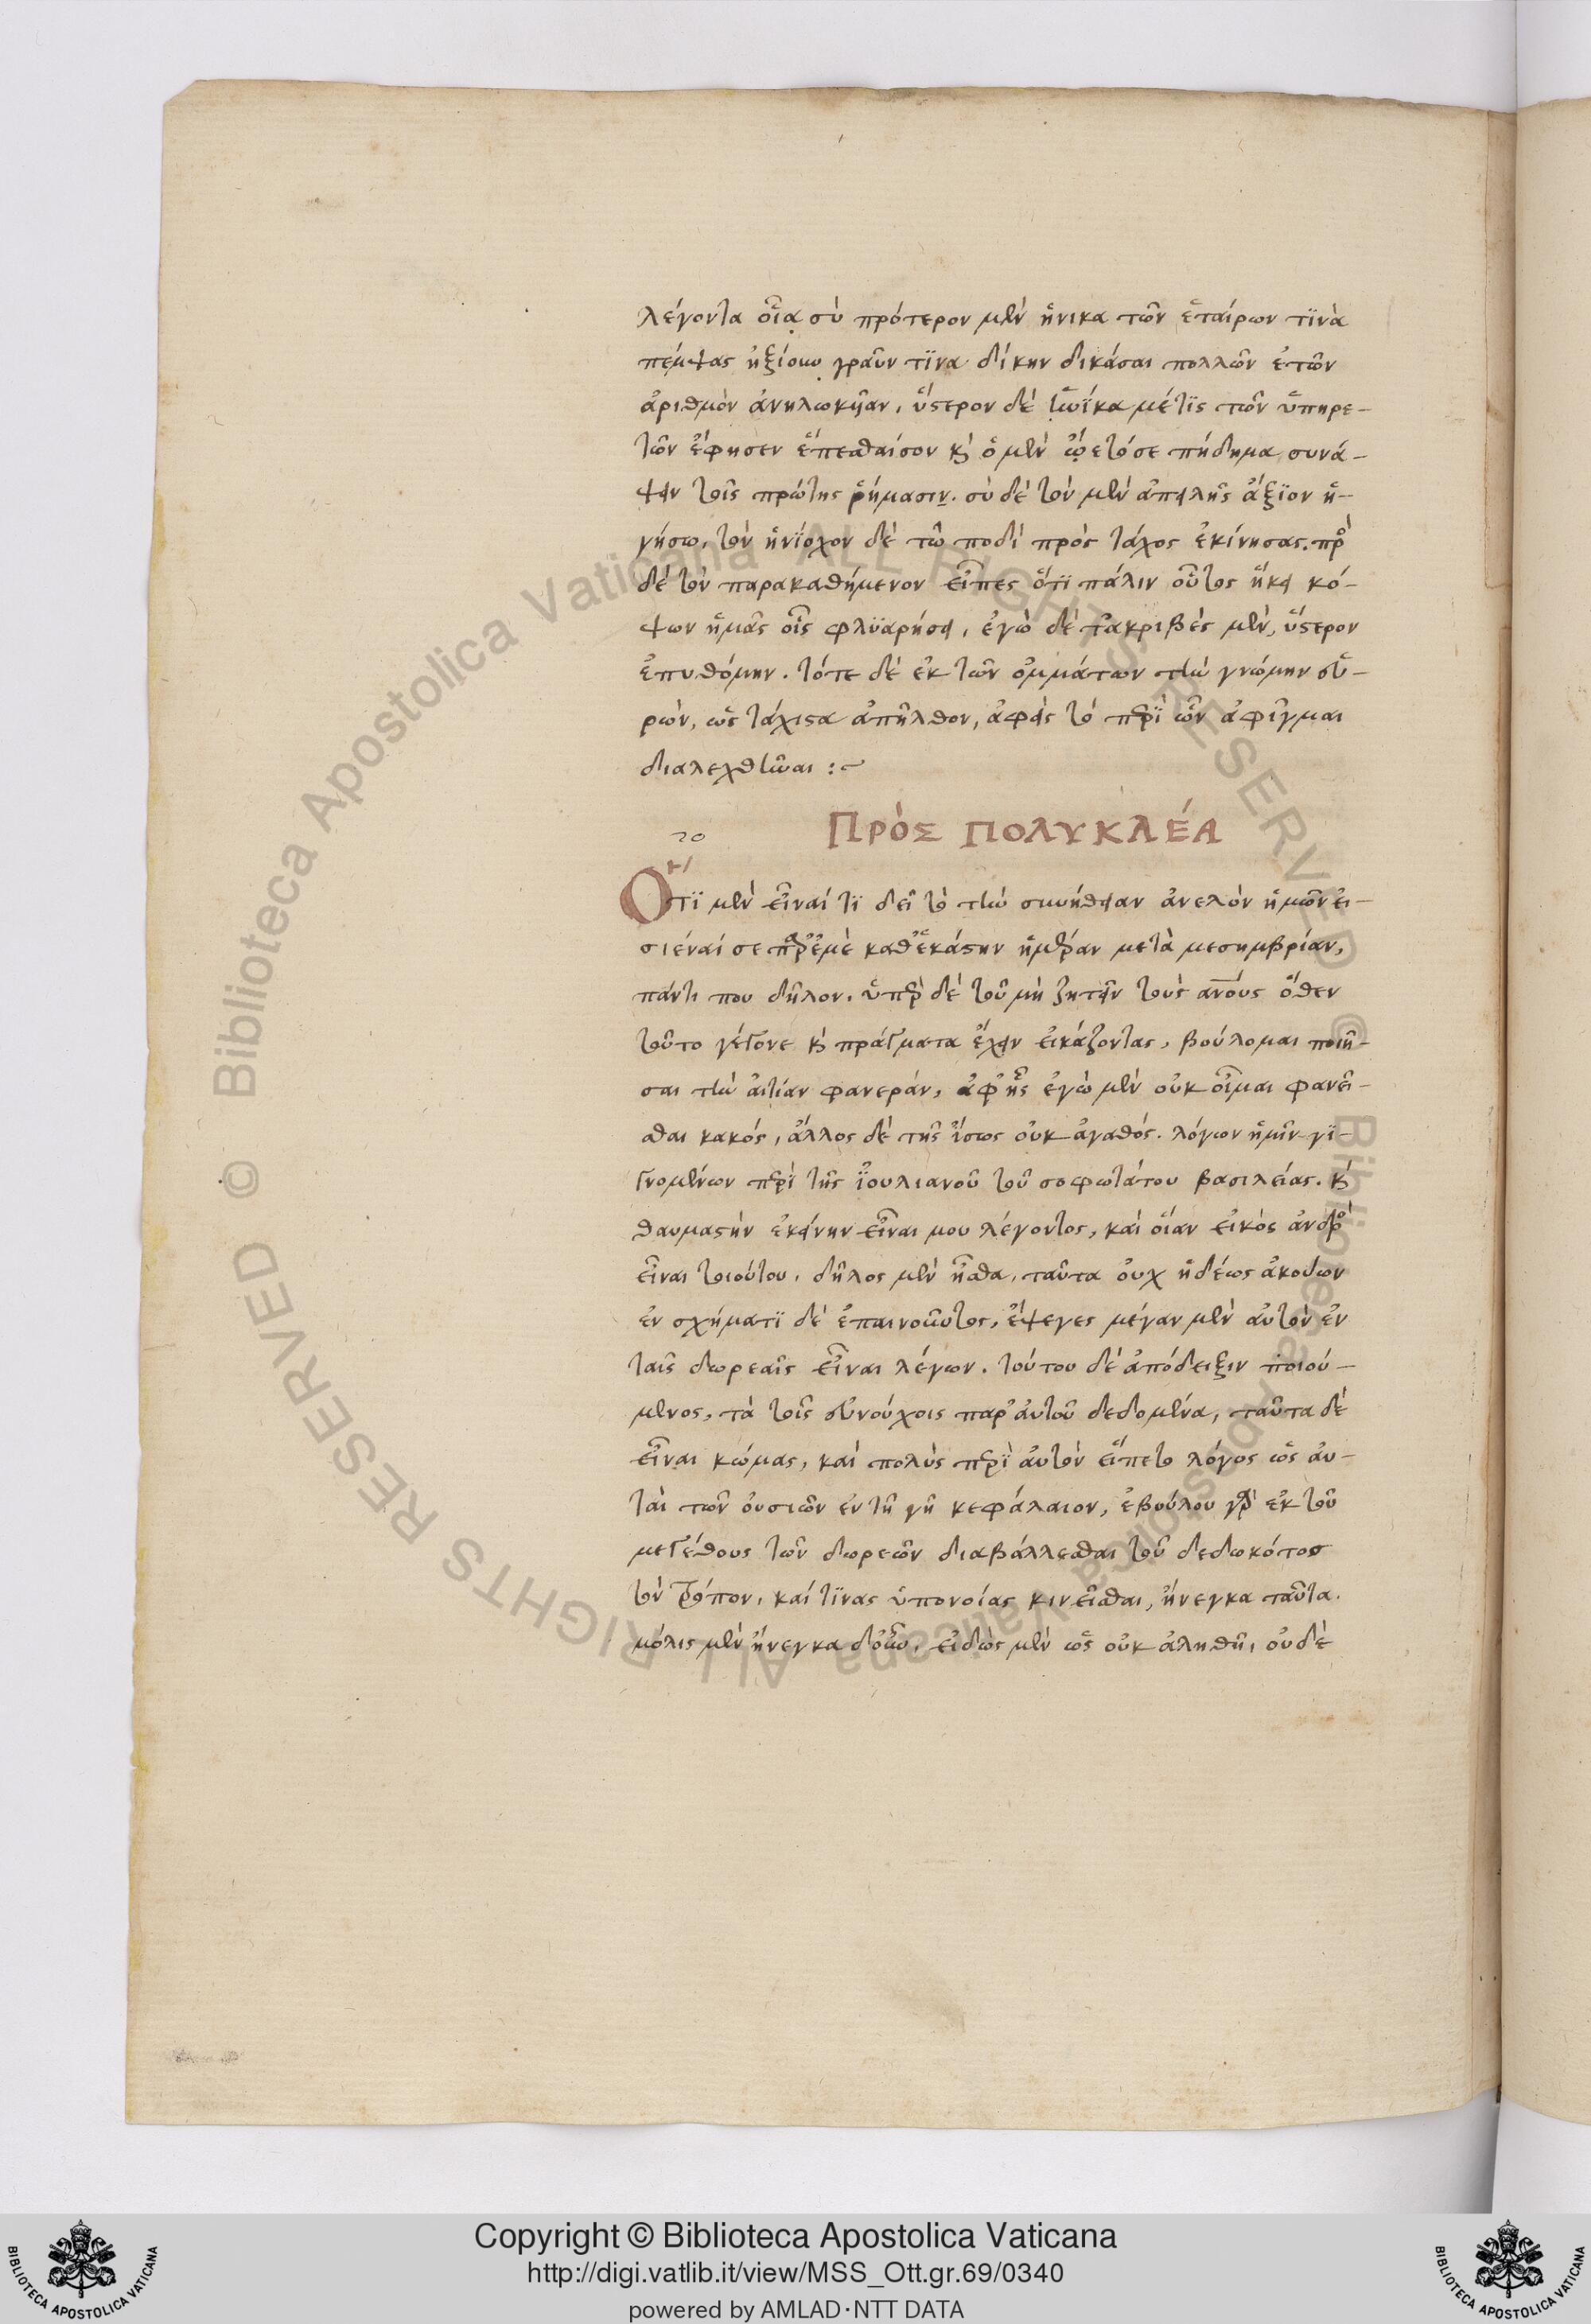 λέγοντα οἷα σὺ πρότερον μὲν ἡνίκα τῶν ἑταίρων τϊνὰ
πέμψας ἠξίουν γραῦν τϊνα δίκην δικάσαι πολλῶν ἐτῶν
ἀριθμὸν ἀνηλωκυῖαν, ὕστερον δὲ ἡνϊκα μέ τϊς τῶν ὑπηρε-
τῶν ἔφησεν ἕπεσθαί σον κ ὁ μὲν ᾤετό σε πήδημα συνά-
ψειν τοῖς πρώτης ῥήμασιν. σὺ δὲ τὸν μὲν ἀπειλῆς ἄξϊον ἡ-
γήσω, τὸν ἡνϊόχον δὲ τῶ ποδὶ πρὸς τάχος ἐκίνησας. πρὸ
δὲ τὸν παρακαθήμενον εἶπες ὅτϊ πάλιν οὗτος ἥκει κό-
ψων ἡμᾶς οἷς φλϋαρήσει, ἐγὼ δὲ τἀκριβὲς μὲν, ὕστερον
ἐπυθόμην. τότε δὲ ἐκ τῶν ὀμμάτων τὴν γνώμην εὑ-
ρών, ὡς τάχιστα ἀπῆλθον, ἀφεὶς τὸ περϊ ὧν ἀφῖγμαι
διαλεχθῆναι :~
20 ΠΡὸΣ ΠΟΛΥΚΛΈΑ
Ὅτϊ μὲν εἶναί τϊ δεῖ τὸ τὴν συνήθειαν ἀνελὸν ἡμῶν εἰ-
σιέναί σε παρ᾽ἐμὲ καθ᾽ἑκάστην ἡμέραν μετὰ μεσημβρίαν,
παντί που δῆλον. ὑπὲρ δὲ τοῦ μὴ ζητεῖν τοὺς ανους ὅθεν
τοῦτο γέγονε κ πράγματα ἔχειν εἰκάζοντας, βούλομαι ποιῆ-
σαι τὴν αἰτίαν φανεράν, ἀφ᾽ἧς ἐγὼ μὲν οὐκ οἶμαι φανεῖ-
σθαι κακός, ἄλλος δὲ τῆς ἴσως οὐκ ἀγαθός. λόγων ἡμῖν γϊ-
γνομένων περὶ τῆς ϊουλιανοῦ τοῦ σοφωτάτου βασιλείας. κ
θαυμαστὴν ἐκείνην εἶναι μου λέγοντος, καὶ οἵαν εἰκὸς ἀνδρὸ
εἶναι τοιούτου, δῆλος μὲν ἦσθα, ταῦτα οὐχ ἡδέως ἀκούων
ἐν σχήματϊ δὲ ἐπαινοῦντος, ἔψεγες μέγαν μὲν αὐτὸν ἐν
ταῖς δωρεαῖς εἶναι λέγων. τούτου δὲ ἀπόδειξιν ποιού-
μενος, τὰ τοῖς εὐνούχοις παρ᾽αὐτοῦ δεδομένα, ταῦτα δὲ
εἶναι κώμας, καὶ πολὺς περὶ αὐτὸν εἵπετο λόγος ὡς αὐ-
ταὶ τῶν οὐσιῶν ἐν τῆ γῆ κεφάλαιον, ἐβούλου γὰρ ἐκ τοῦ
μεγέθους τῶν δωρεῶν διαβάλλεσθαι τοῦ δεδωκότος
τὸν τρόπον, καί τϊνας ὑπονοίας κινεῖσθαι, ἤνεγκα ταῦτα.
μόλις μὲν ἤνεγκα δ᾽οὖν, εἰδὼς μὲν ὡς οὐκ ἀληθῆ, οὐδὲ
Copyright © Biblioteca Apostolica Vaticana
http://digi.vatlib.it/view/MSS_Ott.gr.69/0340
powered by AMLAD·NTT DATA
BIBLIOTECA APOSTOLICA VATICANA
BIBLIOTECA APOSTOLICA VATICANA
© Biblioteca Apostolica Vaticana ALL RIGHTS RESERVED © Biblioteca Apostolica Vaticana ALL RIGHTS RESERVED